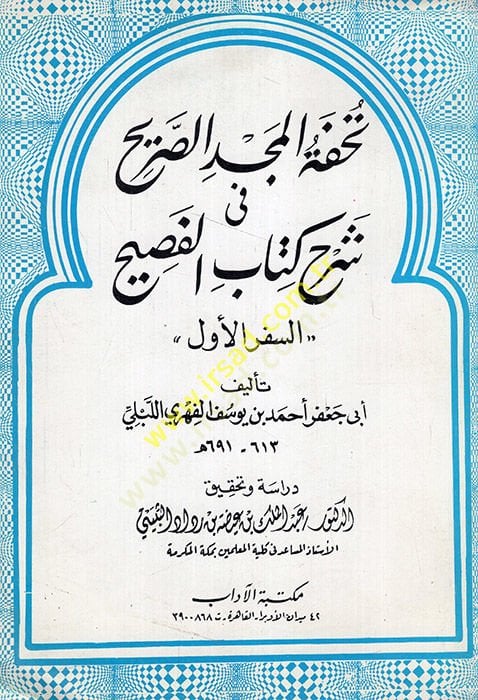 تُحفَةُ المَجْدِ الصَّرِيحِ
فى
شَرحِ كِتَابِ الفَصِيحِ
"السفر الأول"
تأليف
أبى جعفر أحمد بن يوسف الفهري اللَّبْلِي
٦١٣ - ٦٩١ هـ
دراسة وتحقيق
الدكتور / عبد الملك بن عيضة بن رداد الثبيتي
الأستاذ المساعد فى كلية المعلمين بمكة المكرمة
مكتبة الآداب
٤٢ ميدان الأوبرا - القاهرة ت ٣٩٠٠٨٦٨
www.irsad.com.tr